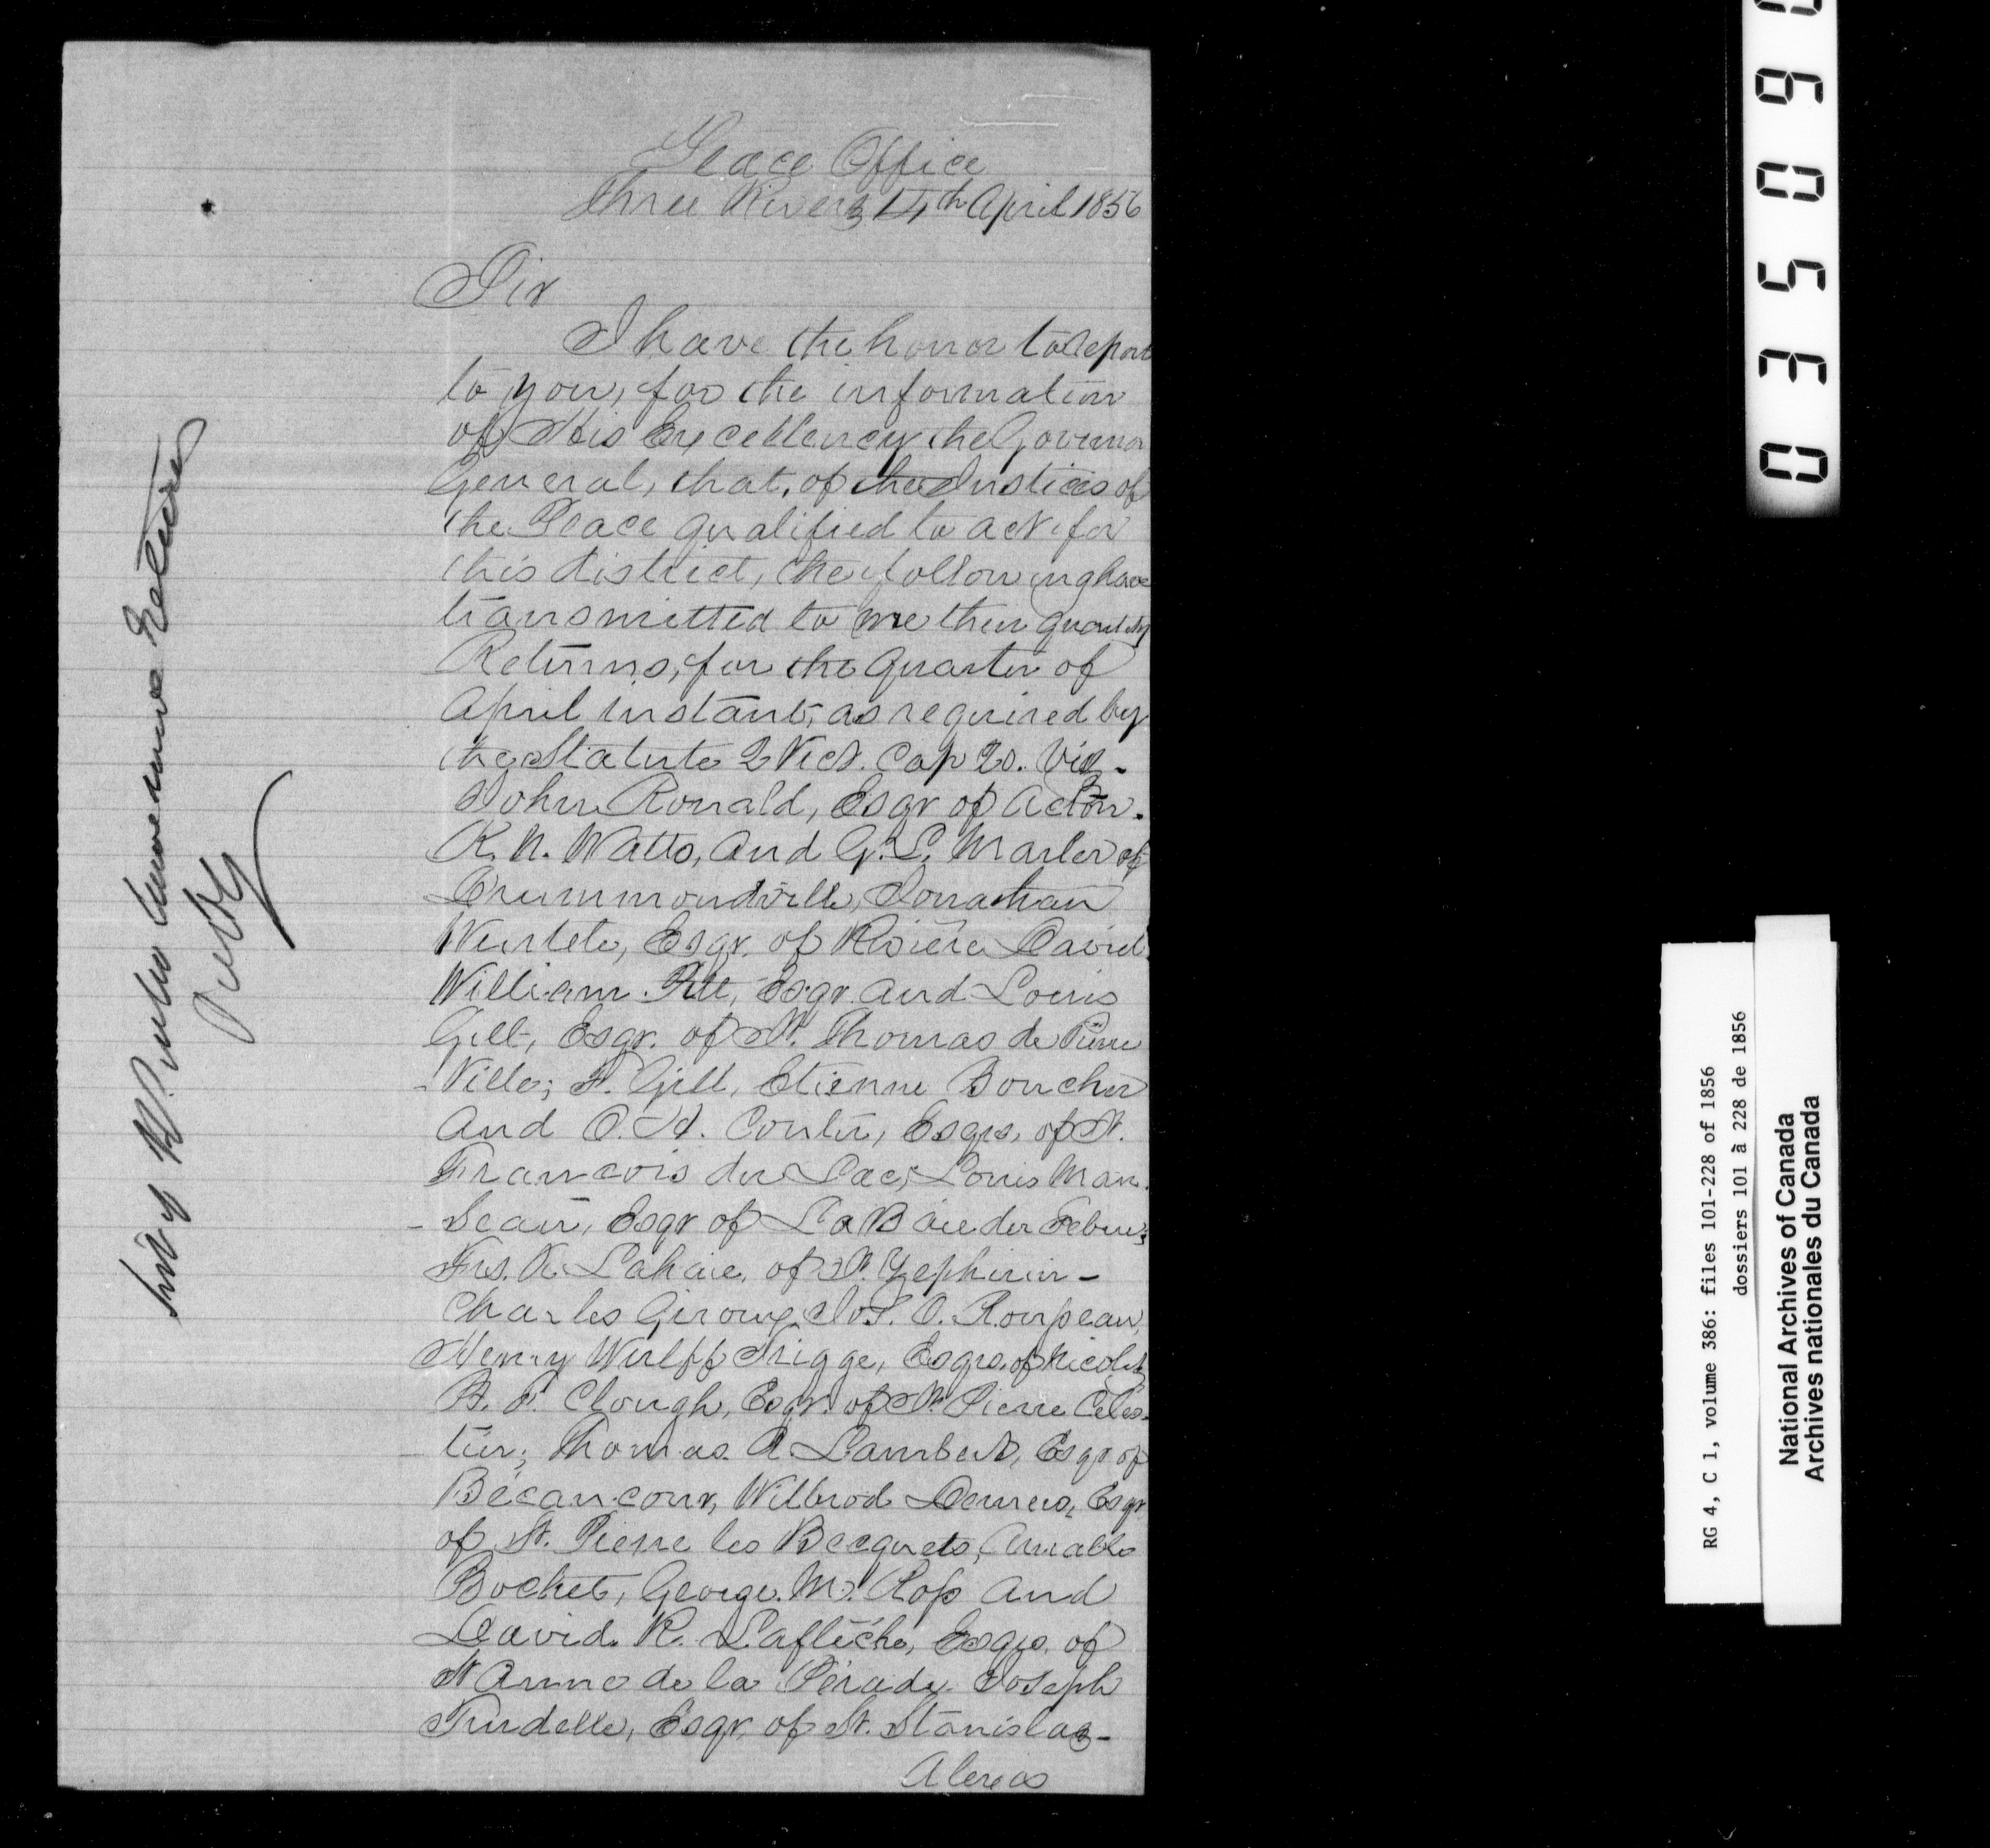 Peace Office
Three Rivers 14th April 1856
Sir
I have the honor to report
to you, for the information
of His Excellency the Governor
General, that, of the Justices of
the Peace qualified to act for
this district, the following have
transmitted to me their quarterly
Returns, for the Quarter of
April instant, as required by
the Statute 2 Vict. Cap 20. Viz -
John Ronald, Esqr of Acton.
R. N. Watts, and G. L. Marler of
Drummondville, Jonathan
Wurtele, Esqr. of Rivière David
William Pitt, Esqr. and Louis
Gill, Esqr. of St. Thomas de Pierre
-Ville; F. Gill, Etienne Boucher
and O. H. Coutu, Esqrs, of St.
Francois du Lac, Louis Man
- Seau, Esqr of La Baie du Febvre;
Frs. X. Lahaie, of St. Zephirin -
Charles Giroux, Jos. O. Rousseau,
Henry Wulff Trigge, Esqrs. of Nicolet
B. F. Clough, Esqr. of St. Pierre Céles-
- tin; Thomas A Lambert, Esqr of
Bécancour, Wilbrod Demers, Esqr
of St. Pierre les Becquets, Amable
Bochet, George M. Ross and
David R. Laflèche, Esqrs. of
St Anne de la Pérade. Joseph
Trudelle, Esqr, of St. Stanislas -
Alexis
Returns
035090
RG 4, C 1, volume 386: files 101-228 of 1856
dossiers 101 à 228 de 1856
National Archives of Canada
Archives nationales du Canada